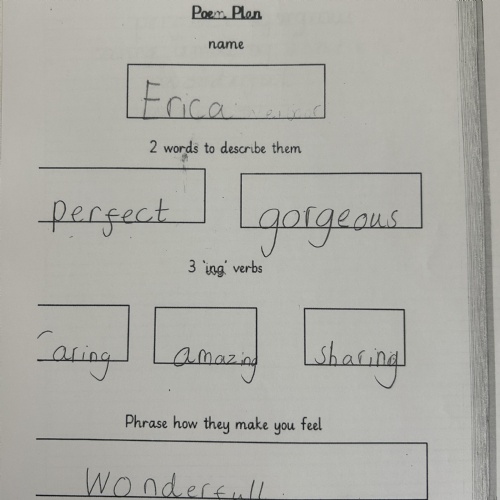 Poem Plan
name
Erica
2 words to describe them
perfect gorgeous
3 'ing' verbs
Caring amazing sharing
Phrase how they make you feel
Wonderfull